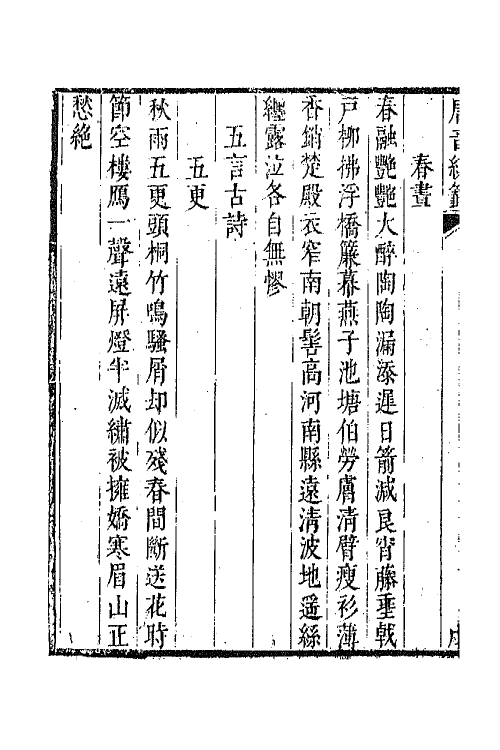 唐音統籤
春晝
春融艷艷大醉陶陶漏添遲日箭減良宵藤垂戟
戶柳拂浮橋簾幕燕子池塘伯勞膚清臂瘦衫薄
香銷楚殿衣窄南朝髻高河南縣遠清波地遥絲
纏露泣各自無憀
五言古詩
五更
秋雨五更頭桐竹鳴騷屑却似殘春間斷送花時
節空樓鴈一聲遠屏燈半滅繡被擁嬌寒眉山正
愁絶